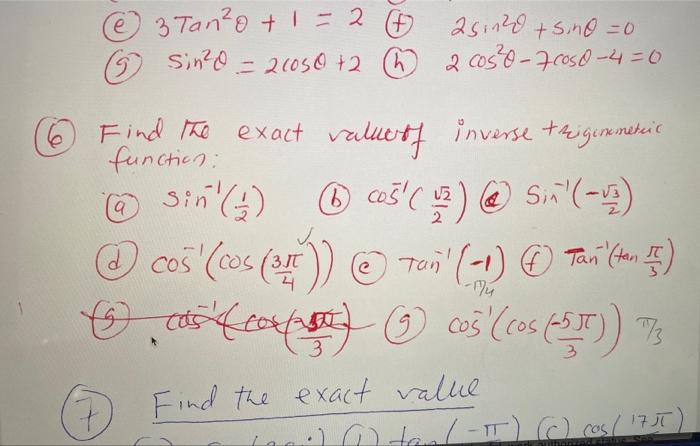 (e) 3 Tan²θ + 1 = 2 (f) 2sin²θ + sinθ = 0
(g) Sin²θ = 2cosθ + 2 (h) 2 cos²θ - 7cosθ - 4 = 0
(6) Find The exact value of inverse trigonometric
function:
(a) Sin⁻¹(1/2) (b) cos⁻¹(√2/2) (c) Sin⁻¹(-√3/2)
(d) cos⁻¹(cos(3π/4)) ✓ (e) Tan⁻¹(-1) -π/4 (f) Tan⁻¹(tan π/3)
(g) cos⁻¹(cos(-5π/3)) π/3
(7) Find the exact value
tan(-π) (c) cos(17π)